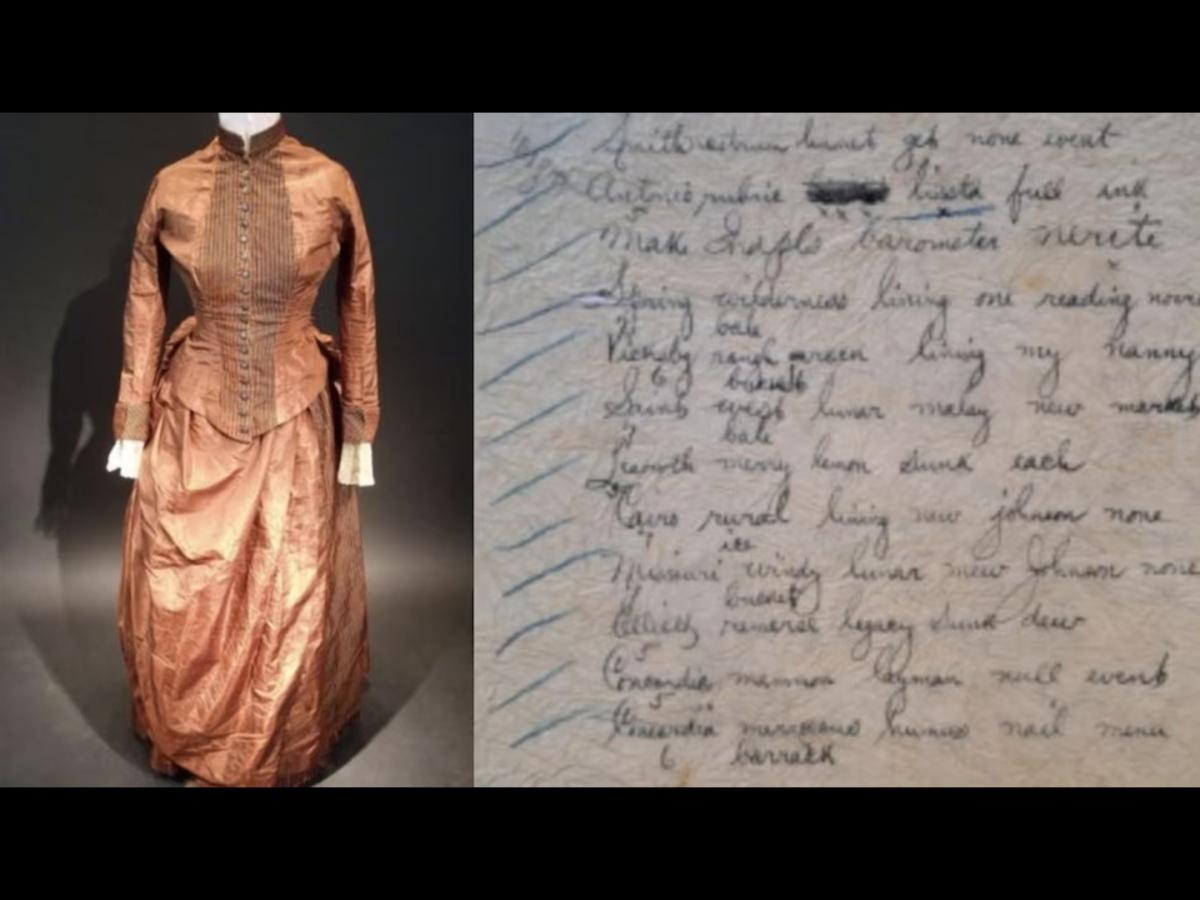 Smith nostrum linnet get none event
Antonio rubric lissts full ink
Make Snaplo barometer nerite
Spring wilderness lining one reading
bale
Vicksby rough lining my nanny
6 bucket
Saints west lunar malay new market
bale
Leawoth merry lemon sunk each
Cairo rural lining new johnson none
ice
Missouri windy lunar mew Johnson none
bucket
removal legacy sunk dew
5
Concordia mammon layman null events
5
Concordia meraccous humus nail menu
6 barrack